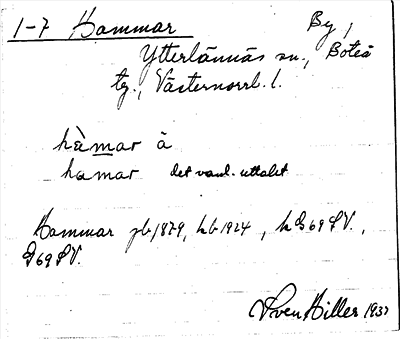 1-7 Hammar By,
Ytterlännäs sn., Boteå
tg., Västernorrl. l.
hàmar å
hamar det vanl. uttalet
Hammar jb 1879, hb 1924, h G69SV.,
G69SV.
Sven Hiller 1937